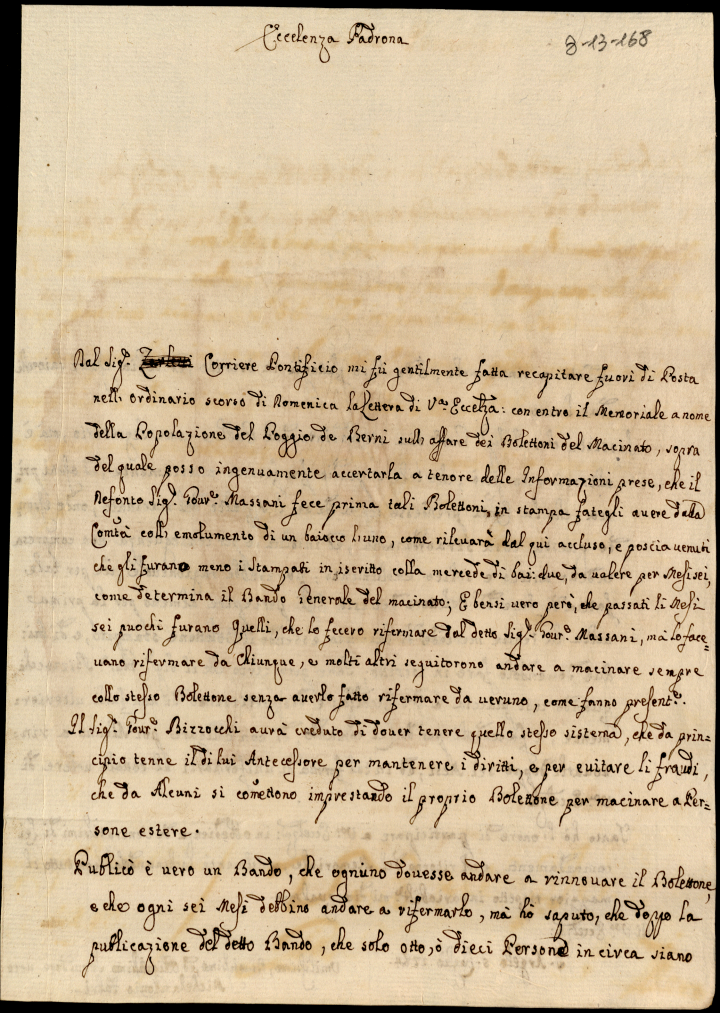 Eccelenza Padrona
8-13-168
Dal Sig.r Corriere Pontificio mi fù gentilmente fatta recapitare fuori di Posta
nell'ordinario scorso di Domenica la Lettera di V.a Eccelza: con entro il Memoriale a nome
della Popolazione del Poggio de Berni sull'affare dei Bolettoni del Macinato, sopra
del quale posso ingenuamente accertarla a tenore delle Informazioni prese, che il
Defonto Sig.r Gour.e Massani fece prima tali Bolettoni in stampa fategli avere dalla
Com.tà coll'emolumento di un baiocco l'uno, come rileuarà dal qui accluso, e poscia uenuti
che gli furano meno i Stampati in iscritto colla mercede di bai: due, da ualere per Mesi sei,
come determina il Bando Generale del macinato; E bensi uero però, che passati li Mesi
sei puochi furano Quelli, che lo fecero rifermare dal detto Sig.r Gour.e Massani, mà lo face=
uano rifermare da Chiunque, e molti altri seguitorono andare a macinare sempre
collo stesso Bolettone senza auerlo fatto rifermare da ueruno, come fanno present.e.
Il Sig.r Gour.e Bizzocchi aurà creduto di douer tenere quello stesso sistema, che da prin=
cipio tenne il di lui Antecessore per mantenere i diritti, e per euitare li fraudi,
che da Alcuni si comettono imprestando il proprio Bolettone per macinare a Per=
sone estere.
Publicò è uero un Bando, che ognuno douesse andare a rinnouare il Bolettone,
e che ogni sei Mesi debbino andare a rifermarlo, mà hò saputo, che doppo la
publicazione del detto Bando, che solo otto, ò dieci Persone in circa siano